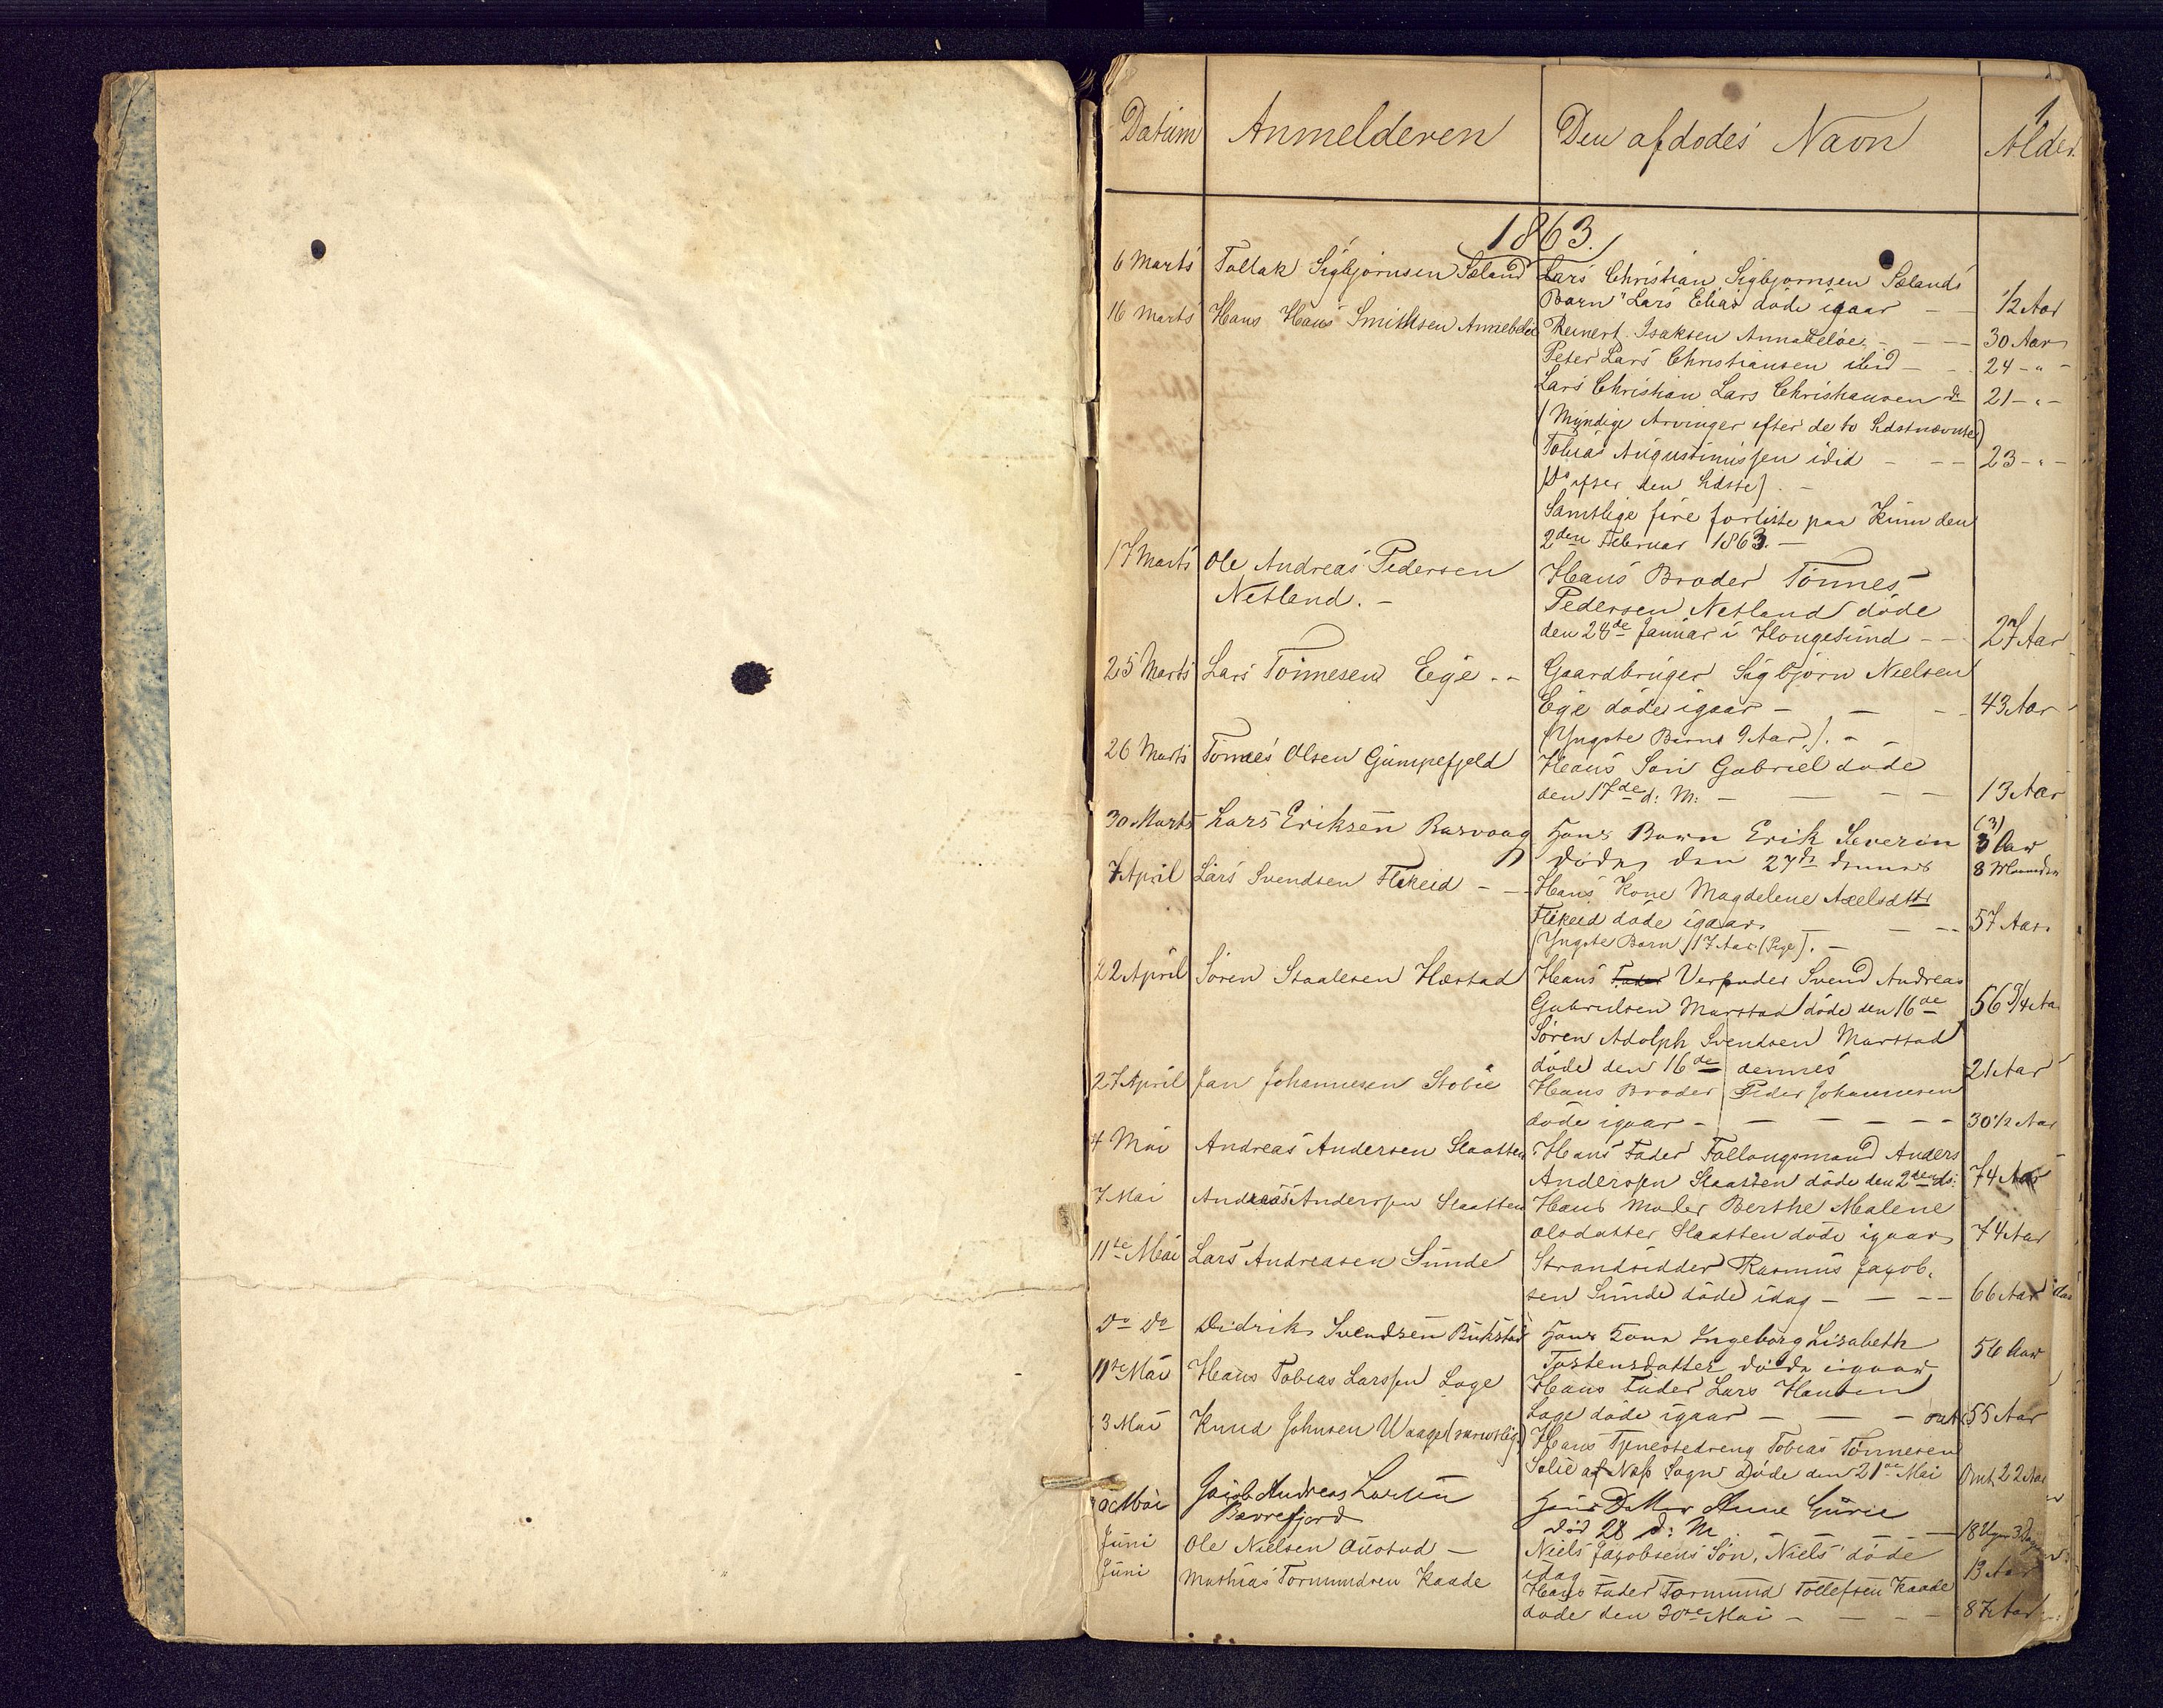 1
Datum Anmelderen Den afdödes Navn Alder
1863.
6 Marts Tallak Sigbjörnsen Sæland Lars Christian Sigbjörnsen Sælands
Barn "Lars Elias döde igaar — — 1/2 Aar
16 Marts Hans Hans Smithsen Reinert Isaksen Annabelöe — — 30 Aar
Peter Lars Christiansen ibid — 24 – " –
Lars Christian Lars Christiansen do 21 – " –
(Myndige Arvinger efter de to Sidstnævnte)
Tobias Augustinussen ibid — — 23 – " –
(Do efter den Sidste). —
Samtlige fire forliste paa Kinn den
2den Februar 1863. —
17 Marts Ole Andreas Pedersen Hans Broder Tönnes
Netland. — Pedersen Netland döde
den 28de Januar i Hougesund — — 27 Aar
25 Marts Lars Tönnesen Ege — — Gaardbruger Sigbjörn Nielsen
Ege döde igaar — — — 43 Aar
(Yngste Barns 9 Aar). — —
26 Marts Tönnes Olsen Gumpefjeld Hans Sön Gabriel döde
den 17de d: M: — — — — 13 Aar
30 Marts Lars Eriksen Rasvaag Hans Barn Erik Severin (3) 3 Aar
döde den 27de dennes 8 Maaneder
7 April Lars Svendsen Flikeid — — Hans Kone Magdelene Axelsdttr
Flikeid döde igaar. — — — 57 Aar.
(Yngste Barn 17 Aar (Pige). —
22 April Sören Staalesen Hæstad Hans Fader Verfader Svend Andreas
Gabrielsen Marstad döde den 16de 56 3/4 Aa
Sören Adolph Svendsen Marstad
döde den 16de dennes 21 Aar
27 April Jan Johannesen Stobie Hans Broder Peder Johannesen
döde igaar — — — — — 30 1/2 Aar
4 Mai Andreas Andersen Slaatten Hans Fader Follougsmand Anders
Anderssen Slaatten döde den 2den ds: 74 Aar
7 Mai Andreas Anderssen Slaatten Hans Moder Berthe Malene
Olsdatter Slaatten döde igaar 74 Aar
11te Mai Lars Andreasen Sunde Strandsidder Rasmus Jacob-
sen Sunde döde idag — — — — 66 Aar
Do Do Didrik Svendsen Bukstad Hans Kone Ingeborg Lisabeth
Tostensdatter döde igaar 56 Aar
11te Mai Hans Tobias Larssen Loge Hans Fader Lars Hansen
Loge döde igaar — — — omt 55 Aar
3 Mai Knud Johnsen Waage (skriftlig) Hans Tjenestedreng Tobias Tönnesen
Solie af Næs Sogn Döde den 21de Mai Omt 22 Aar
Mai Jacob Andreas Larsen Hans Datter Anne Gurie
Bævrefjord död 28 d: M. — 18 Uger 3 Dage
Juni Ole Nielsen Austad — Niels Jacobsens Sön, Niels döde
idag — 13 Aar
Juni Mathias Tormundsen Kaade Hans Fader Tormund Tollefsen Kaade
döde den 30te Mai — — — — 87 Aar